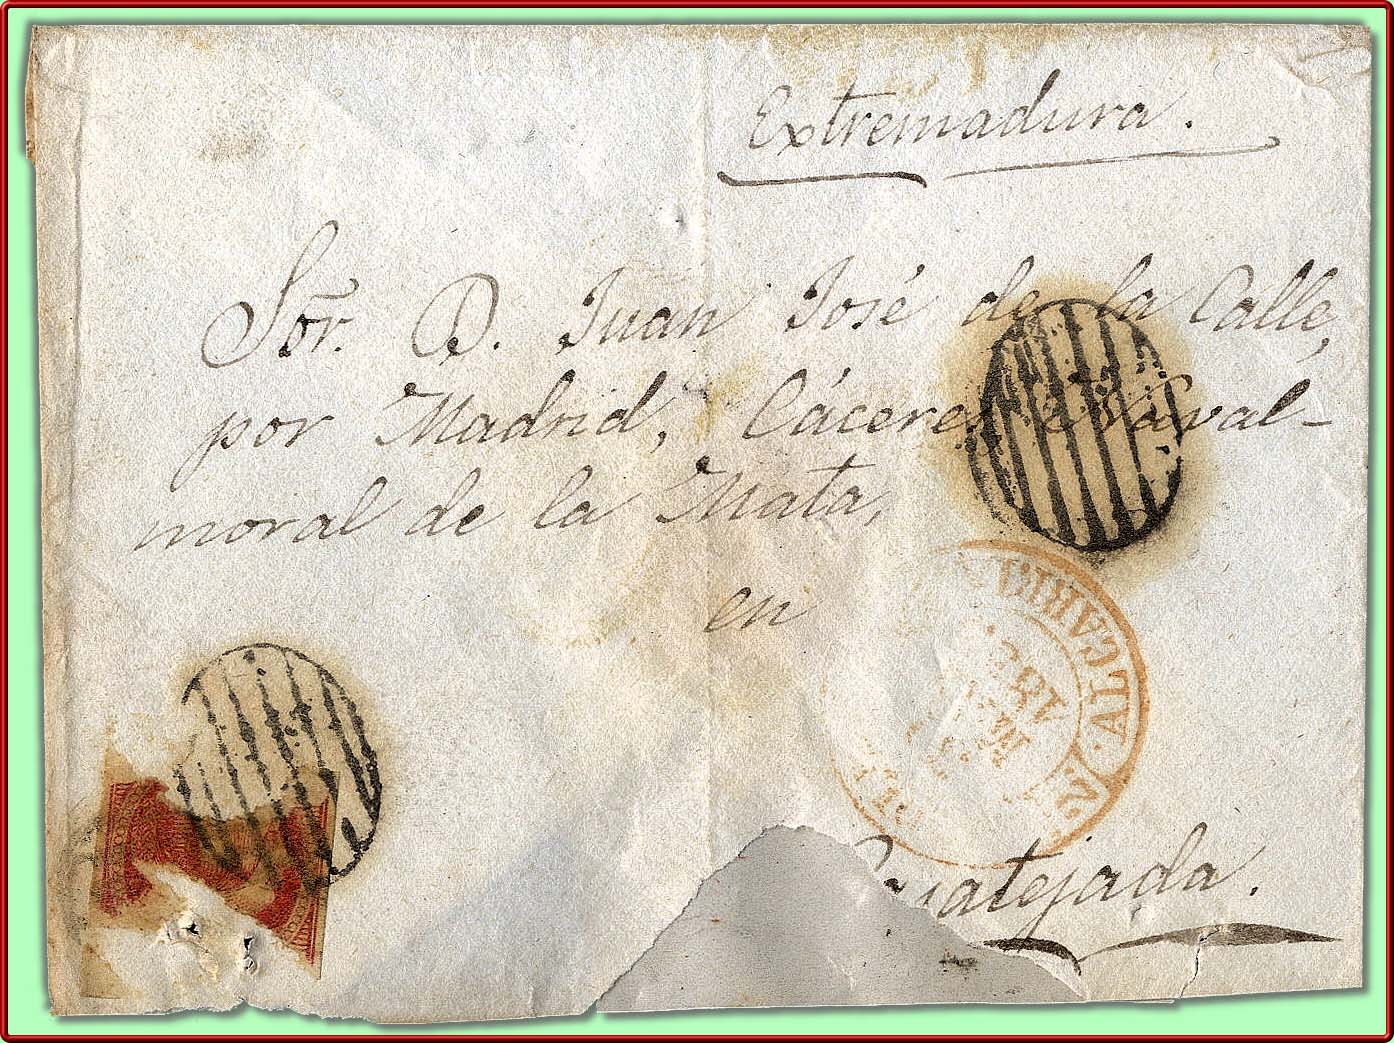 Extremadura.
Sor. D. Juan José de la Calle,
por Madrid, Cáceres, Naval-
moral de la Mata,
en
ALCCARRIA